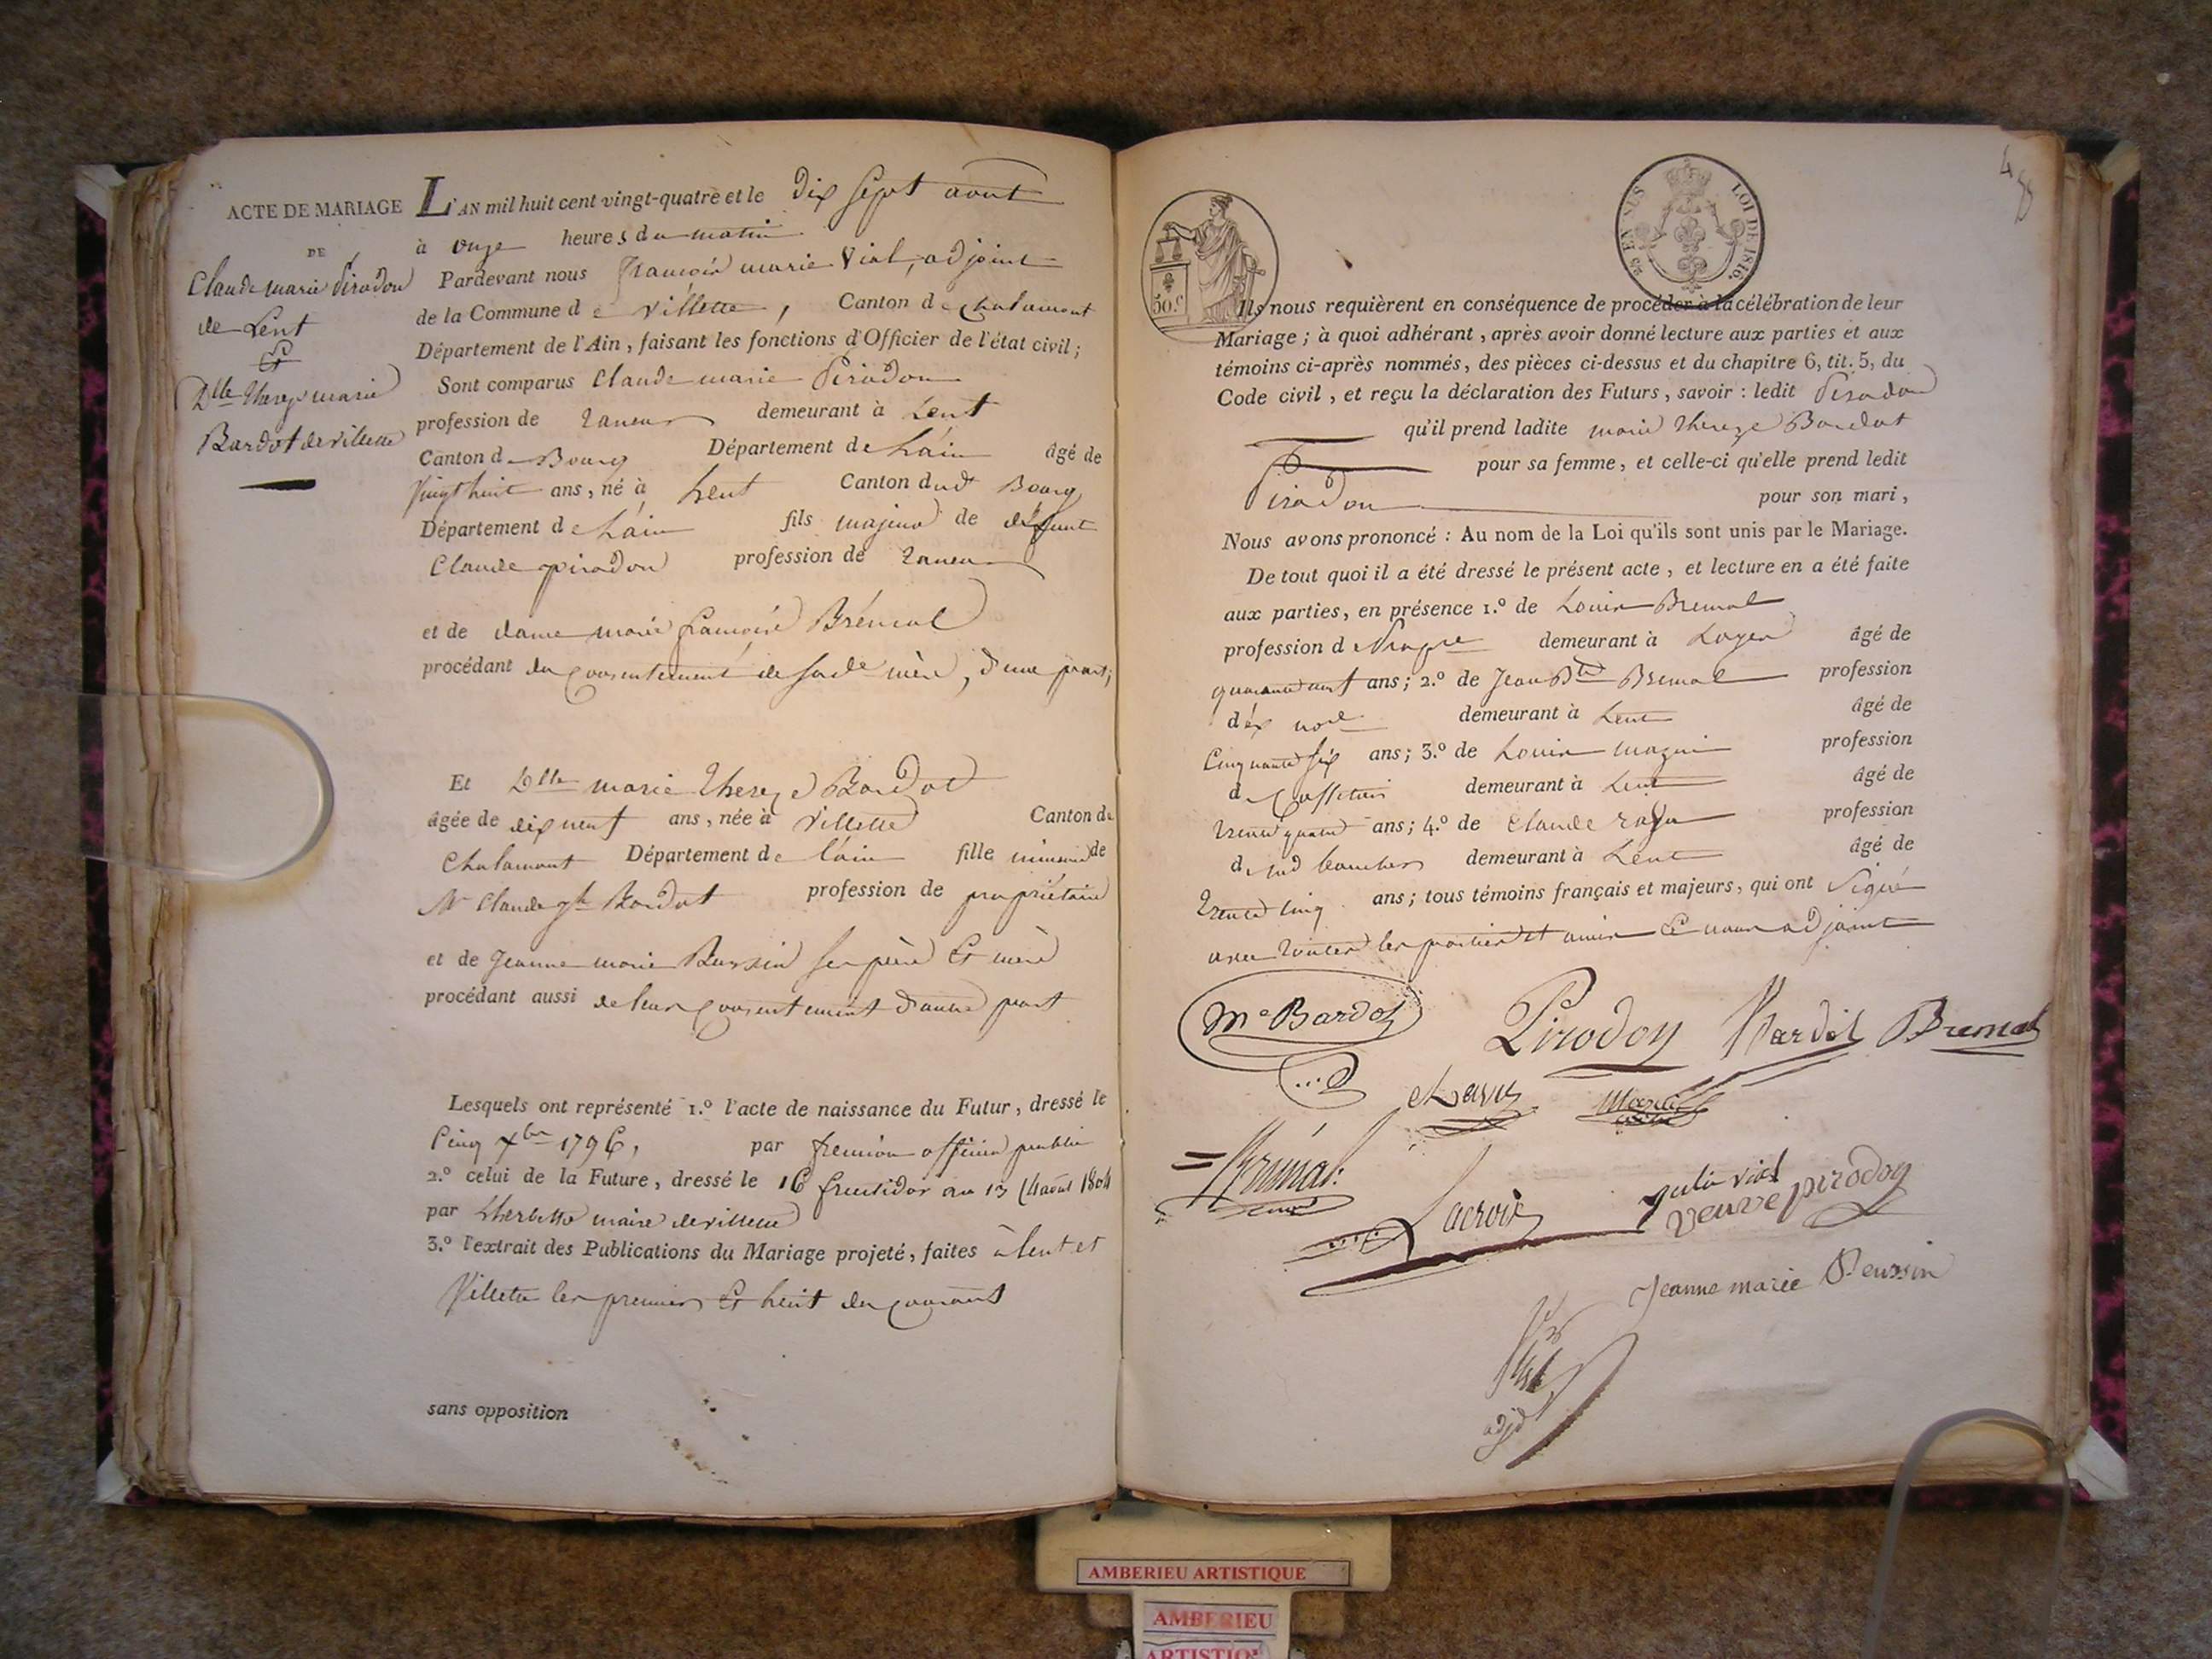 ACTE DE MARIAGE
DE
Claude marie Pirodon
de Lent
&
Dlle Thereze marie
Bardot de villette
L'AN mil huit cent vingt-quatre et le Dix sept aout
à onze heures du matin
Pardevant nous françois marie Vial, adjoint
de la Commune de villette, Canton de Chalamont
Département de l'Ain, faisant les fonctions d'Officier de l'état civil;
Sont comparus Claude marie Pirodon
profession de Taneur demeurant à Lent
Canton de Bourg Département de Lain âgé de
Vingt huit ans, né à Lent Canton dudt Bourg
Département de Lain fils majeur de défunt
Claude pirodon profession de Taneur
et de dame marie françoise Brémal
procédant du Consentement de sade mère, d'une part;
Et Dlle marie Thereze Bardot
âgée de dix neuf ans, née à Villette Canton de
Chalamont Département de l'ain fille mineure de
Mr Claude Bardot profession de propriétaire
et de Jeanne marie ses père Et mère
procédant aussi de leur Consentement d'autre part
Lesquels ont représenté 1.º l'acte de naissance du Futur, dressé le
Cinq 1796, par officier public
2.º celui de la Future, dressé le 16 fructidor an 13 (4 août 1804
par Lherbette maire de villette
3.º l'extrait des Publications du Mariage projeté, faites à lent et
Villette les premier Et huit du courant
sans opposition
50.c
C.s EN SUS LOI DE 1816.
48
Ils nous requièrent en conséquence de procéder à la célébration de leur
Mariage; à quoi adhérant, après avoir donné lecture aux parties et aux
témoins ci-après nommés, des pièces ci-dessus et du chapitre 6, tit. 5, du
Code civil, et reçu la déclaration des Futurs, savoir: ledit Pirodon
qu'il prend ladite marie Thereze Bardot
pour sa femme, et celle-ci qu'elle prend ledit
Pirodon pour son mari,
Nous avons prononcé: Au nom de la Loi qu'ils sont unis par le Mariage.
De tout quoi il a été dressé le présent acte, et lecture en a été faite
aux parties, en présence 1.º de Louis Bremal
profession d demeurant à Loyes âgé de
ans; 2.º de Jean Bte Bremal profession
d demeurant à Lent âgé de
Cinquante six ans; 3.º de Louis profession
de Caffetier demeurant à Lent âgé de
trente quatre ans; 4.º de Claude profession
d boucher demeurant à Lent âgé de
Trente cinq ans; tous témoins français et majeurs, qui ont Signé
avec toutes les parties et amis Et nous adjoint
Me Bardot Pirodon Bardot Bremal
=Brémal: Lacroix
vial
veuve pirodon
Jeanne marie
Vial
adjt
AMBERIEU ARTISTIQUE
AMBERIEU
ARTISTIQ